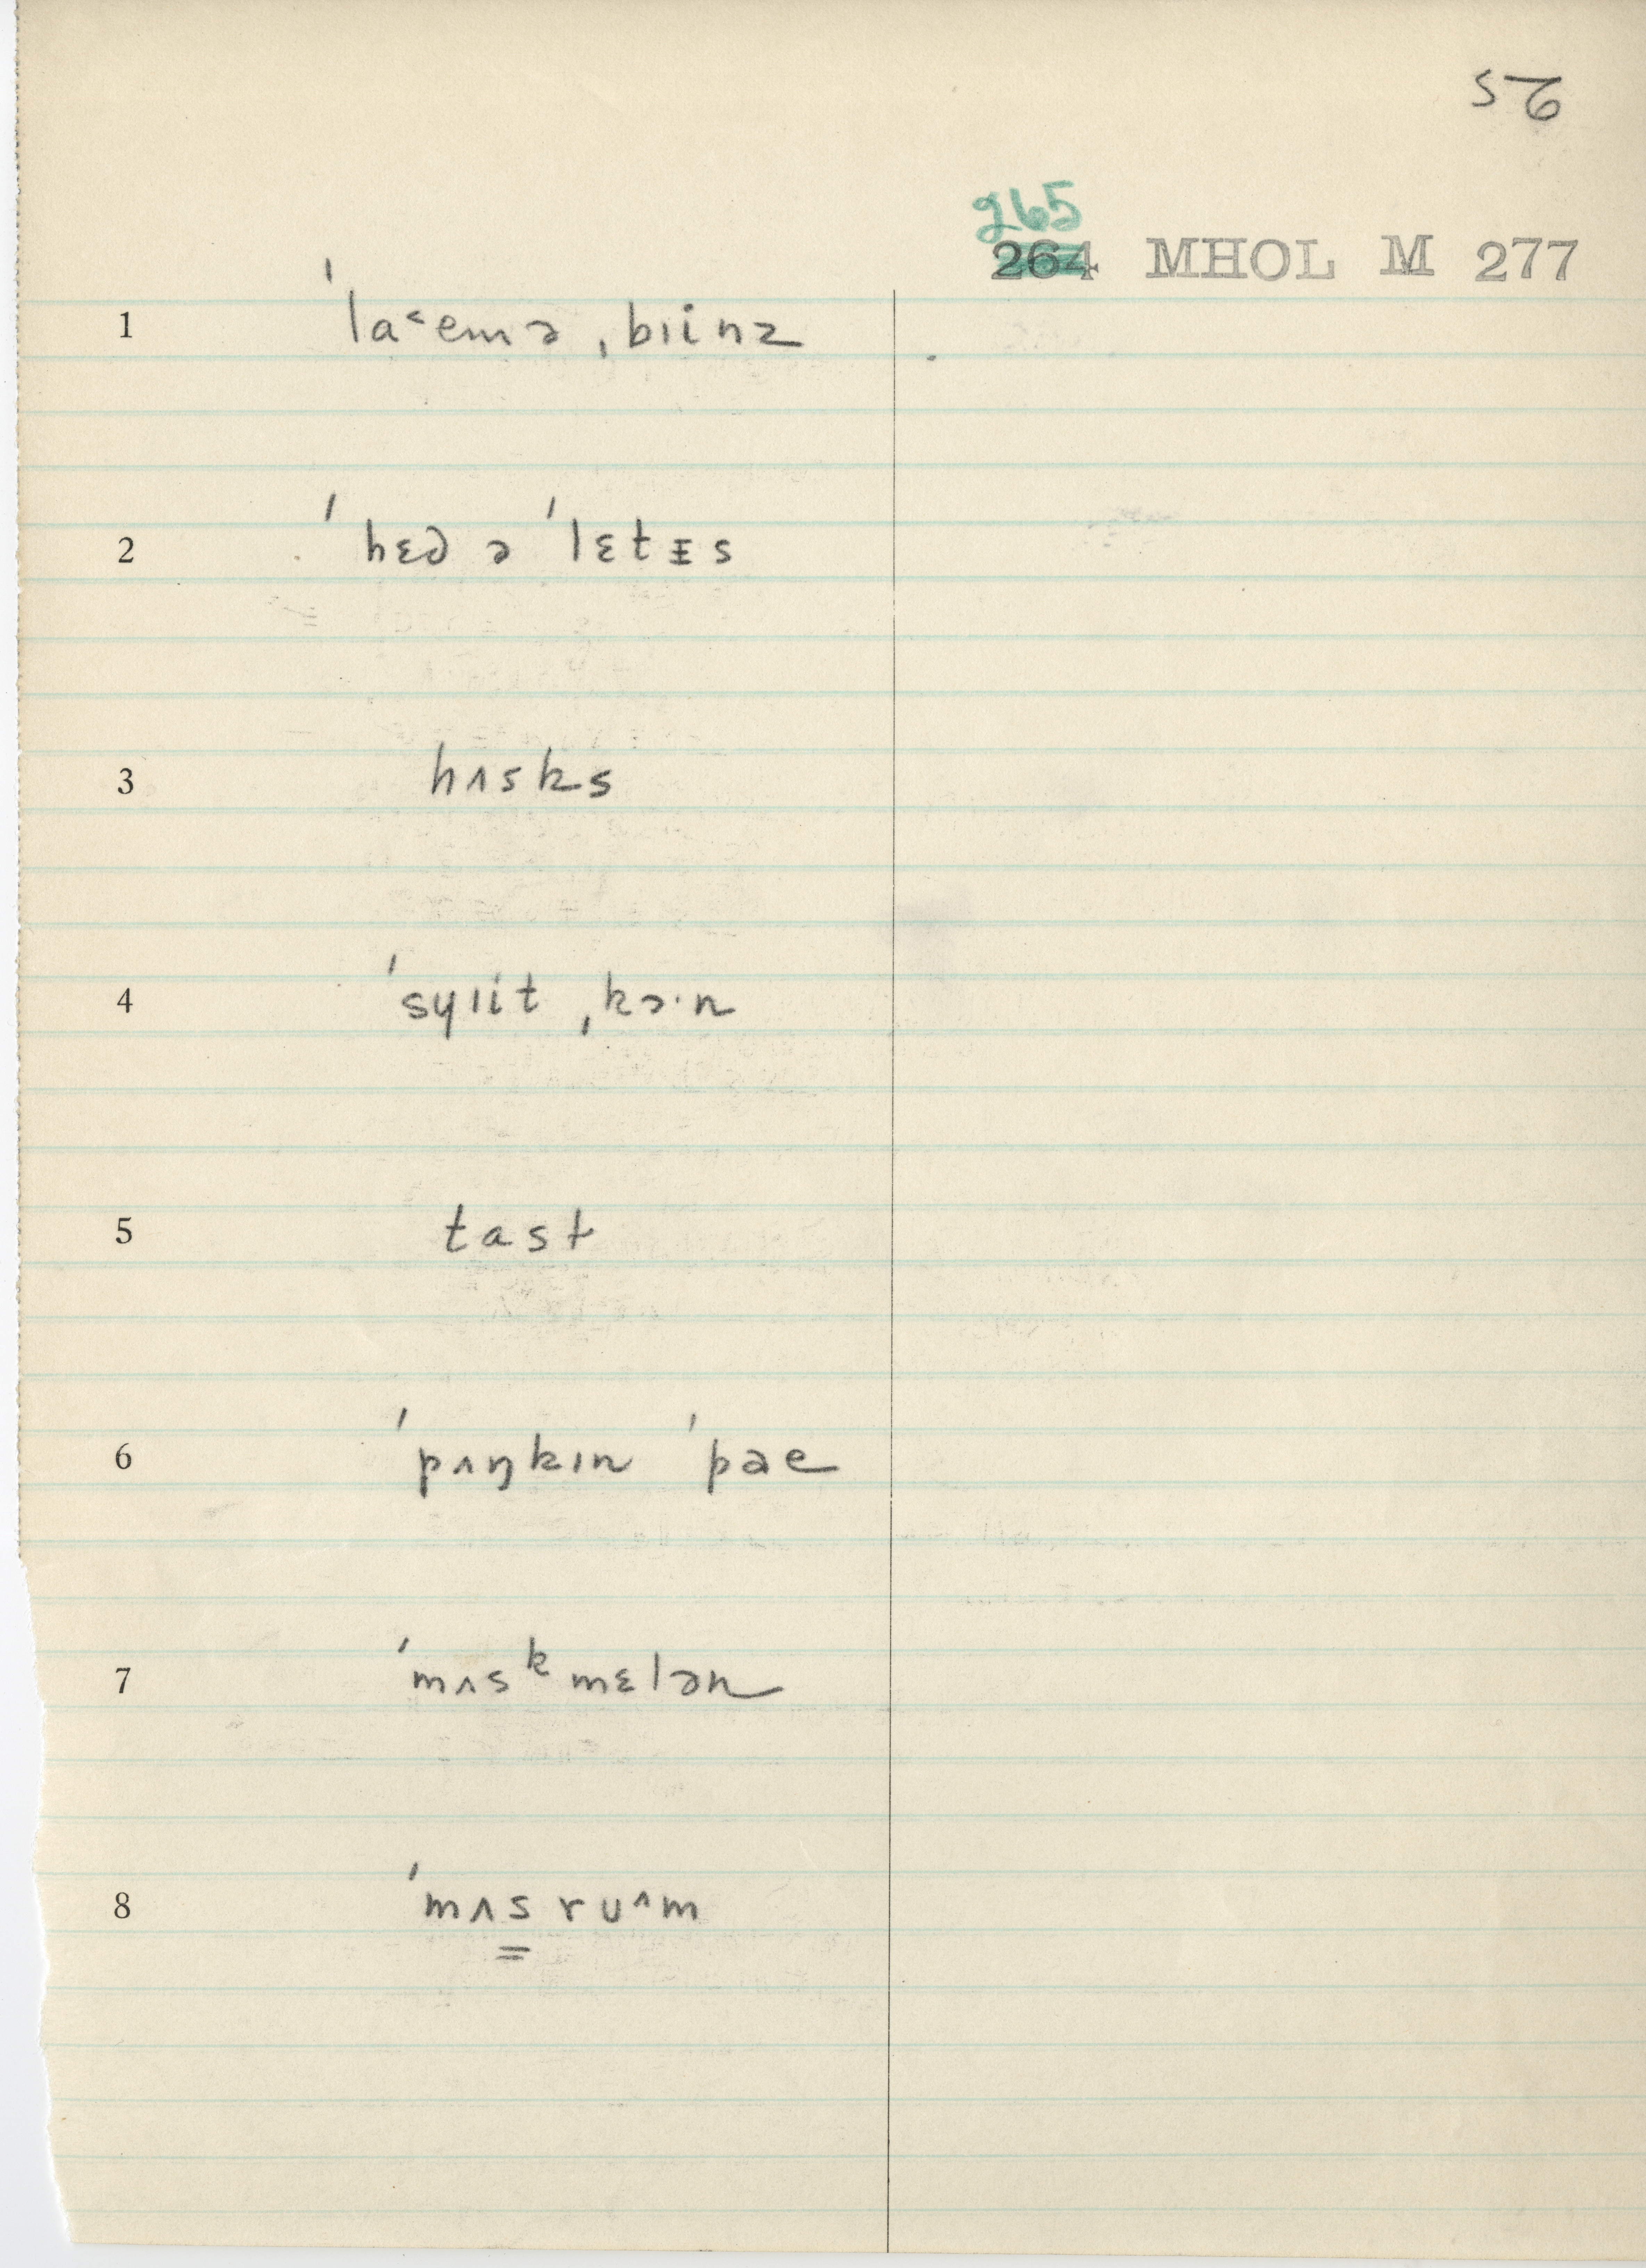 56
265
264 MHOL M 277
1 ˈlaᵋemə ˌbɪinz
2 ˈhɛd ə ˈlɛtɪ̵s
3 hʌsks
4 ˈsyɪit ˌkɔ·n
5 tast
6 ˈpʌŋkɪn ˈpae
7 ˈmʌsᵏmɛlən
8 ˈmʌs̳ruᶺm